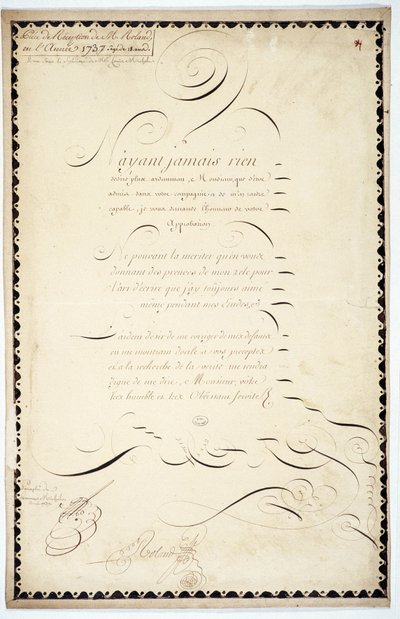 Piéce de Réception de M. Roland,
en l'Année 1737. agé de 18 ans
N'ayant jamais rien
desiré plus ardamman, Monsieur, que d'être
admis dans votre compagnie et de m'en rendre
capable, je vous demande l'honneur de votre
Approbation
Ne pouvant la meriter qu'en vous
donnant des preuves de mon zele pour
l'art d'écrire que j'ay toujours aimé
même pendant mes études, et
L'ardent desir de me corriger de mes defauts
en me montrant docile a vos preceptes
et a la recherche de la verité me rendra
digne de me dire, Monsieur, votre
tres humble et tres Obéissant servite
Roland